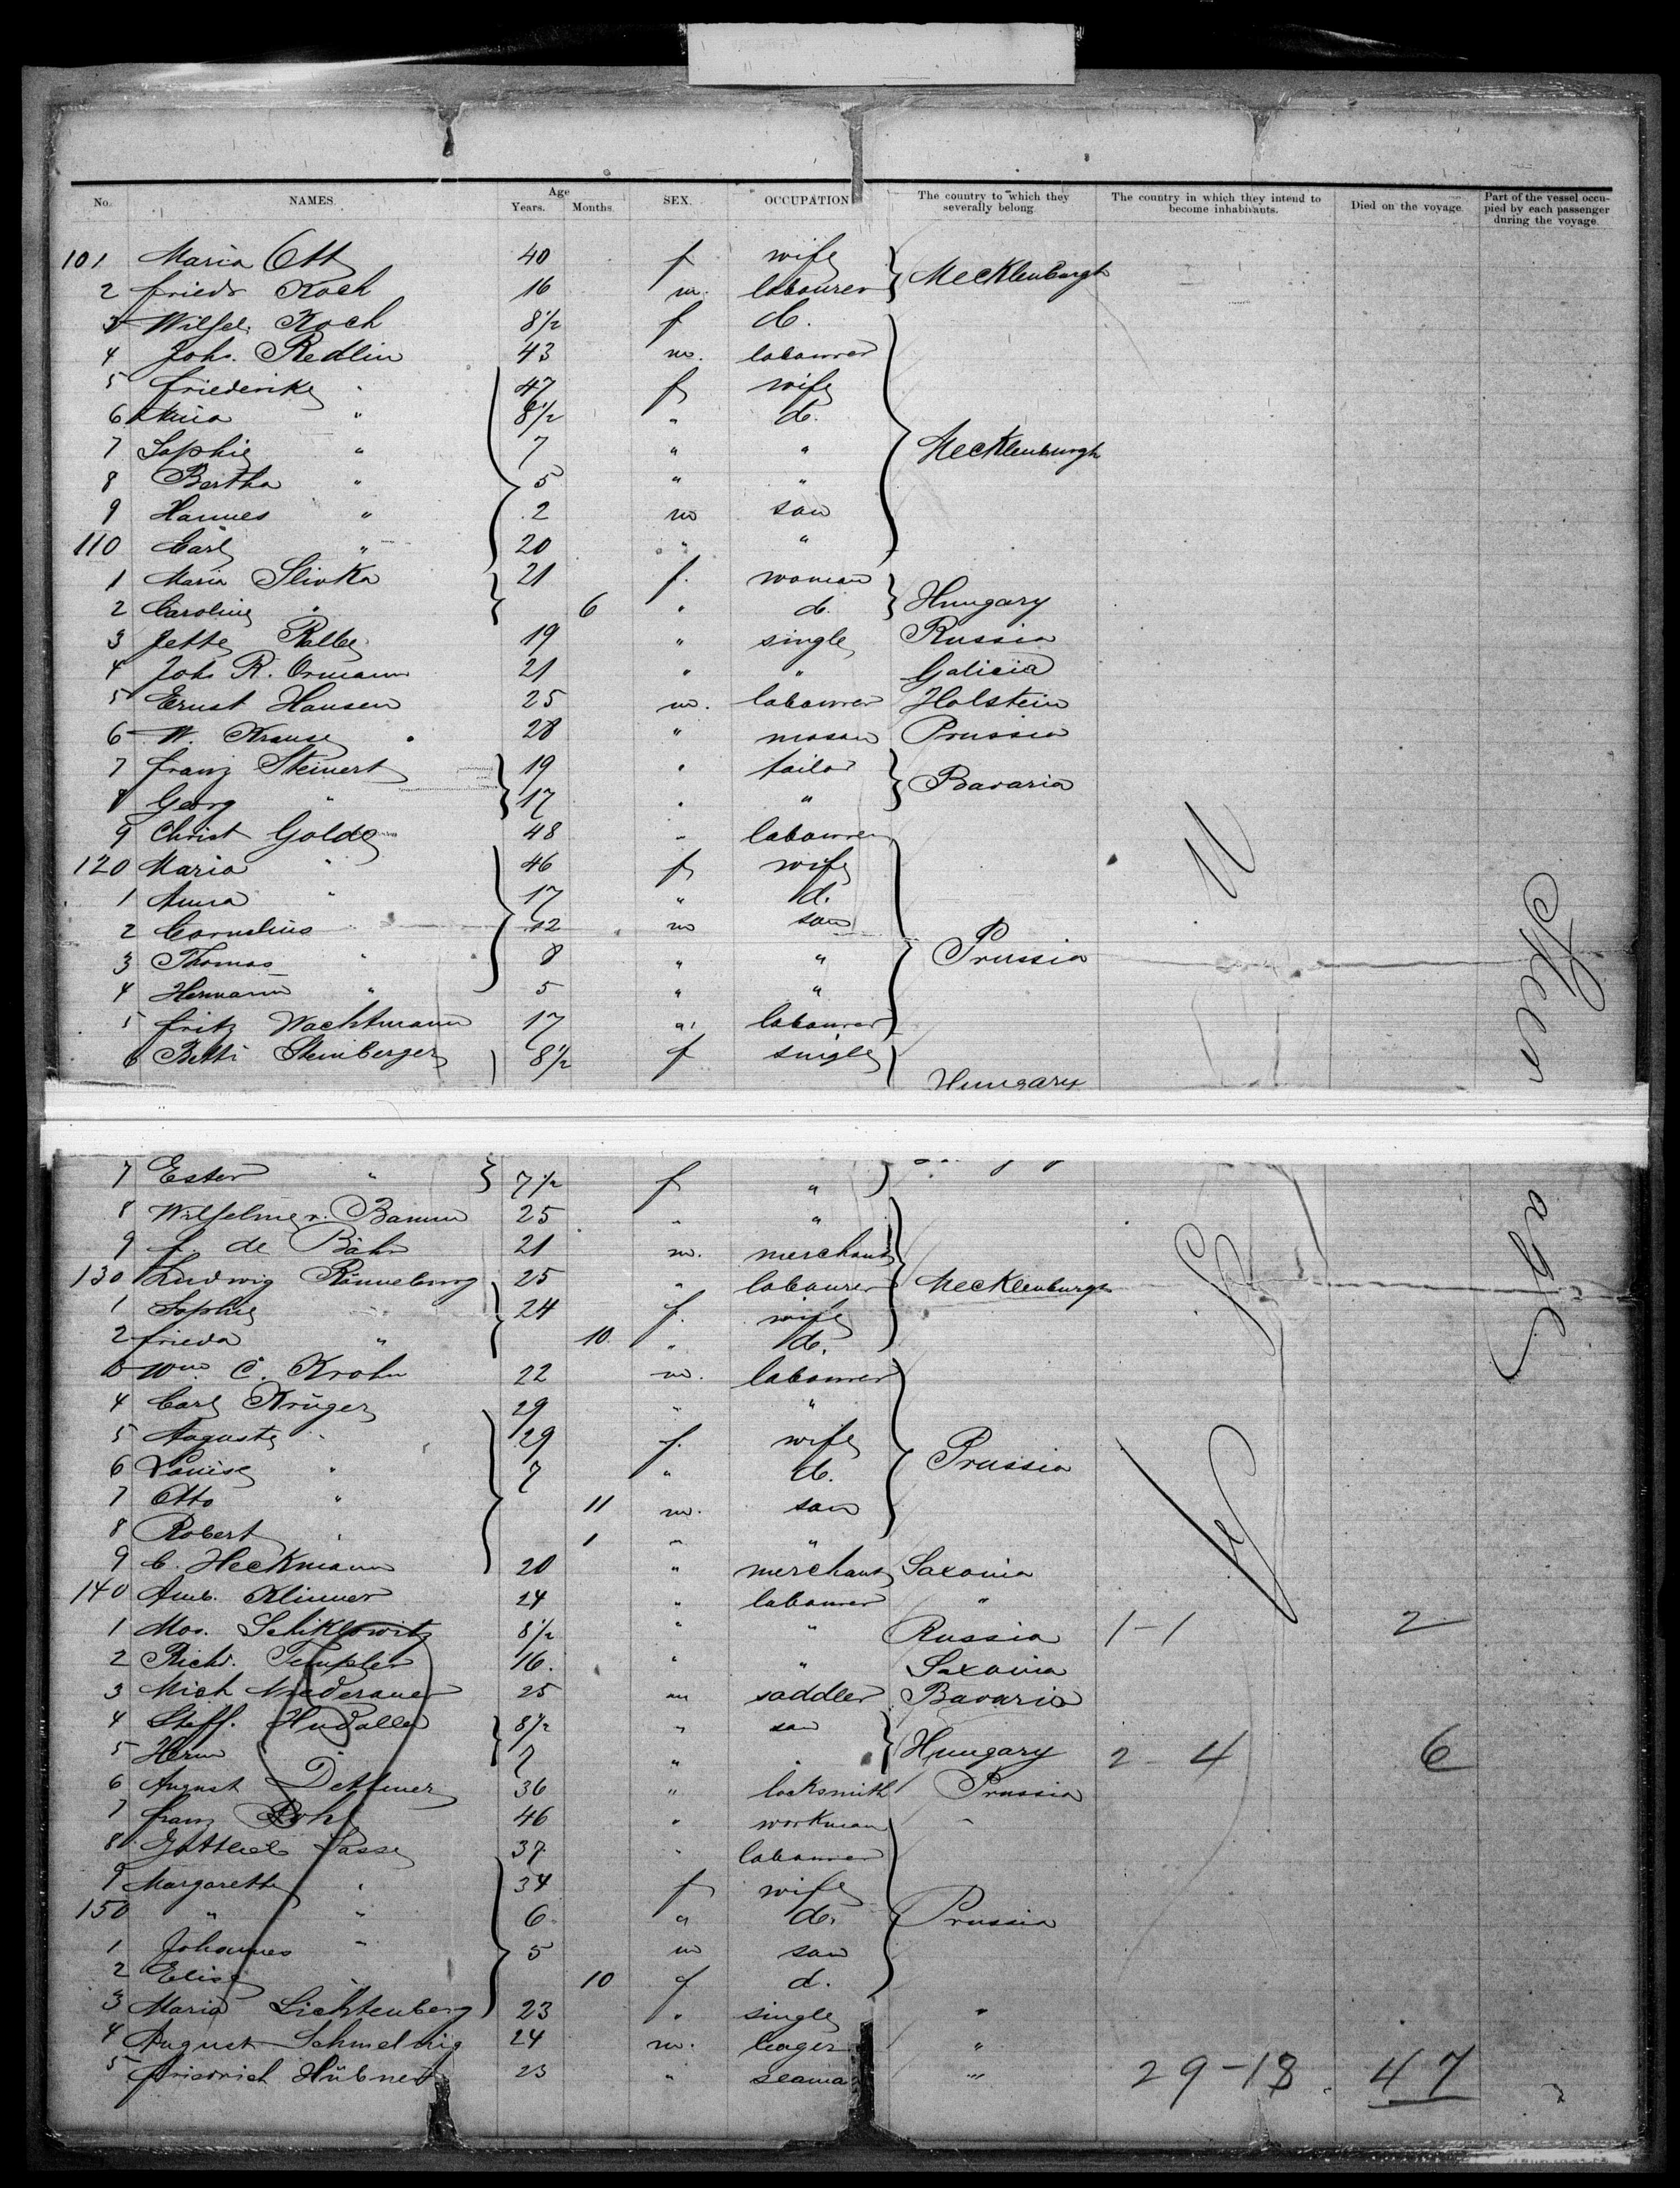 No. NAMES. Age Years. Months. SEX. OCCUPATION The country to which they severally belong The country in which they intend to become inhabitants. Died on the voyage. Part of the vessel occupied by each passenger during the voyage.
101 Maria Ott 40 f wife Mecklenburgh
2 Friedr Koch 16 m. labourer
3 Wilhel. Koch 8½ f d.
4 Johs. Redlin 43 m. labourer
5 Friederike " 47 f wife
6 Mina " 8½ " d.
7 Sophie " 7 " " Mecklenburgh
8 Bertha " 5 " "
9 Hannes " 2 m son
110 Carl " 20 " "
1 Maria Slivka 21 f. woman
2 Caroline " 6 " d. Hungary
3 Jette 19 " single Russia
4 Johs R. Ormann 21 " " Galicia
5 Ernst Hansen 25 m. labourer Holstein
6 W. Krause 28 " mason Prussia
7 Franz Steinert 19 " tailor Bavaria
8 Georg " 17 " "
9 Christ Golde 48 " labourer
120 Maria " 46 f wife
1 Anna " 17 " d.
2 Cornelius " 12 m son
3 Thomas " 8 " " Prussia
4 Hermann " 5 " "
5 Fritz Wachtmann 17 " labourer
6 Betti Steinberger 8½ f single Hungary
7 Ester " 7½ f "
8 Wilhelmine v. Bamm 25 " "
9 F. de Bähr 21 m. merchant
130 Ludwig Rönneburg 25 " labourer Mecklenburgh
1 Sophie " 24 f. wife
2 Frieda " 10. " d.
3 Wm. C. Krohn 22 m. labourer
4 Carl Krüger 29 " "
5 Auguste " 29 f. wife Prussia
6 Louise " 7 " d.
7 Otto " 11 m. son
8 Robert " 1 " "
9 C. Heckmann 20 " merchant Saxonia
140 Amb. Klinner 24 " labourer "
1 Mos. Schiklowitz 8½ " " Russia 1-1 2
2 Richd. Templer 16. " " Saxonia
3 Mich Niederauer 25 m saddler Bavaria
4 Steff. Hudaller 8½ " son Hungary 2-4 6
5 Herm " 7 " "
6 August Dettmer 36 " locksmith Prussia
7 Franz Pohl 46 " workman "
8 Gottlieb Sasse 37 " labourer
9 Margarethe " 34 f wife
150 " " 6 " d. Prussia
1 Johannes " 5 m son
2 Elise " 10 f d.
3 Maria Lichtenberg 23 " single "
4 August 24 m. "
5 Friedrich Hübner 23 " seaman " 29-18. 47
Steerage